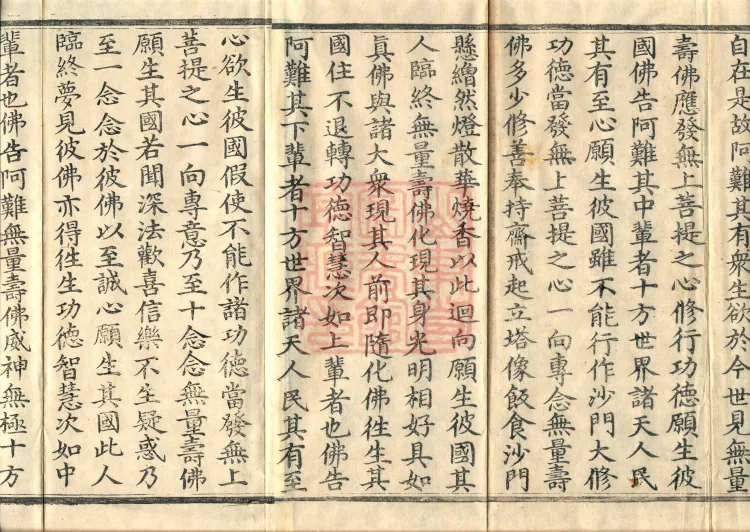 自在是故阿難其有衆生欲於今世見無量
壽佛應發無上菩提之心修行功德願生彼
國佛告阿難其中輩者十方世界諸天人民
其有至心願生彼國雖不能行作沙門大修
功德當發無上菩提之心一向專念無量壽
佛多少修善奉持齋戒起立塔像飯食沙門
懸繒然燈散華燒香以此迴向願生彼國其
人臨終無量壽佛化現其身光明相好具如
眞佛與諸大衆現其人前即隨化佛徃生其
國住不退轉功德智慧次如上輩者也佛告
阿難其下輩者十方世界諸天人民其有至
心欲生彼國假使不能作諸功德當發無上
菩提之心一向專意乃至十念念無量壽佛
願生其國若聞深法歡喜信樂不生疑惑乃
至一念念於彼佛以至誠心願生其國此人
臨終夢見彼佛亦得徃生功德智慧次如中
輩者也佛告阿難無量壽佛威神無極十方